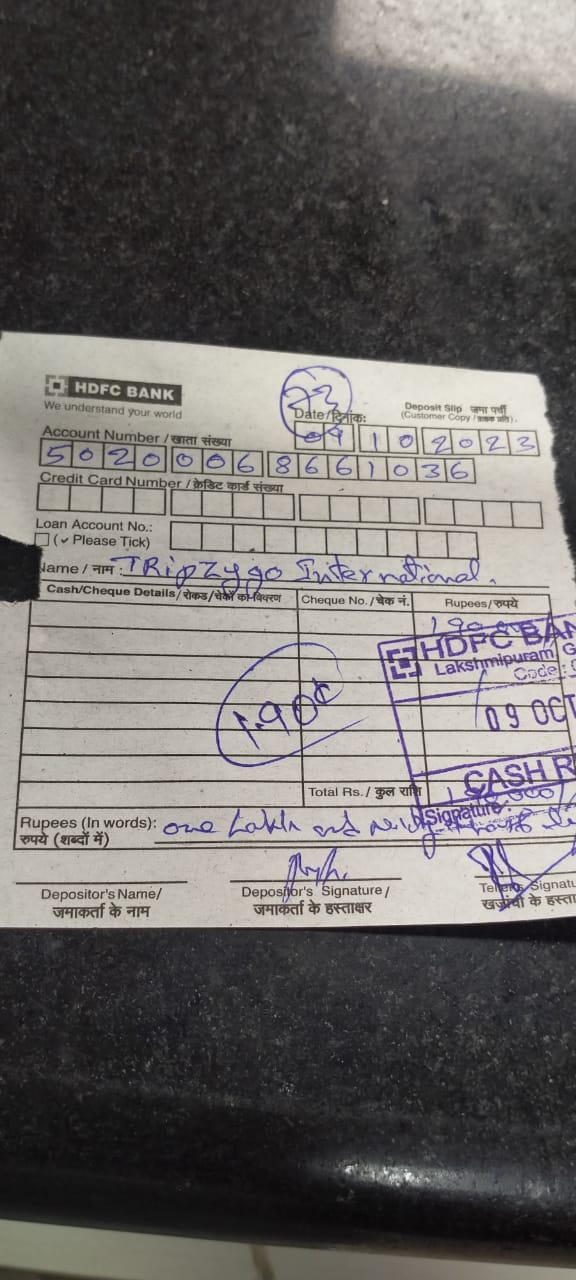 HDFC BANK
We understand your world
23
Date/दिनांक:
Deposit Slip जमा पर्ची
(Customer Copy / ग्राहक प्रति).
09 10 2023
Account Number / खाता संख्या
50200068661036
Credit Card Number / क्रेडिट कार्ड संख्या
Loan Account No.:
(✓ Please Tick)
Name / नाम : TRipZygo International.
Cash/Cheque Details/रोकड/चेकों का विवरण
Cheque No. / चेक नं.
Rupees/रुपये
HDFC BAN
Lakshmipuram G
Code :
1.90
09 OCT
CASH R
Total Rs. / कुल राशि
Signature :
Rupees (In words): one Lakh and
रुपये (शब्दों में)
Depositor's Name/
जमाकर्ता के नाम
Depositor's Signature /
जमाकर्ता के हस्ताक्षर
Teller's Signatu
खजांची के हस्ता